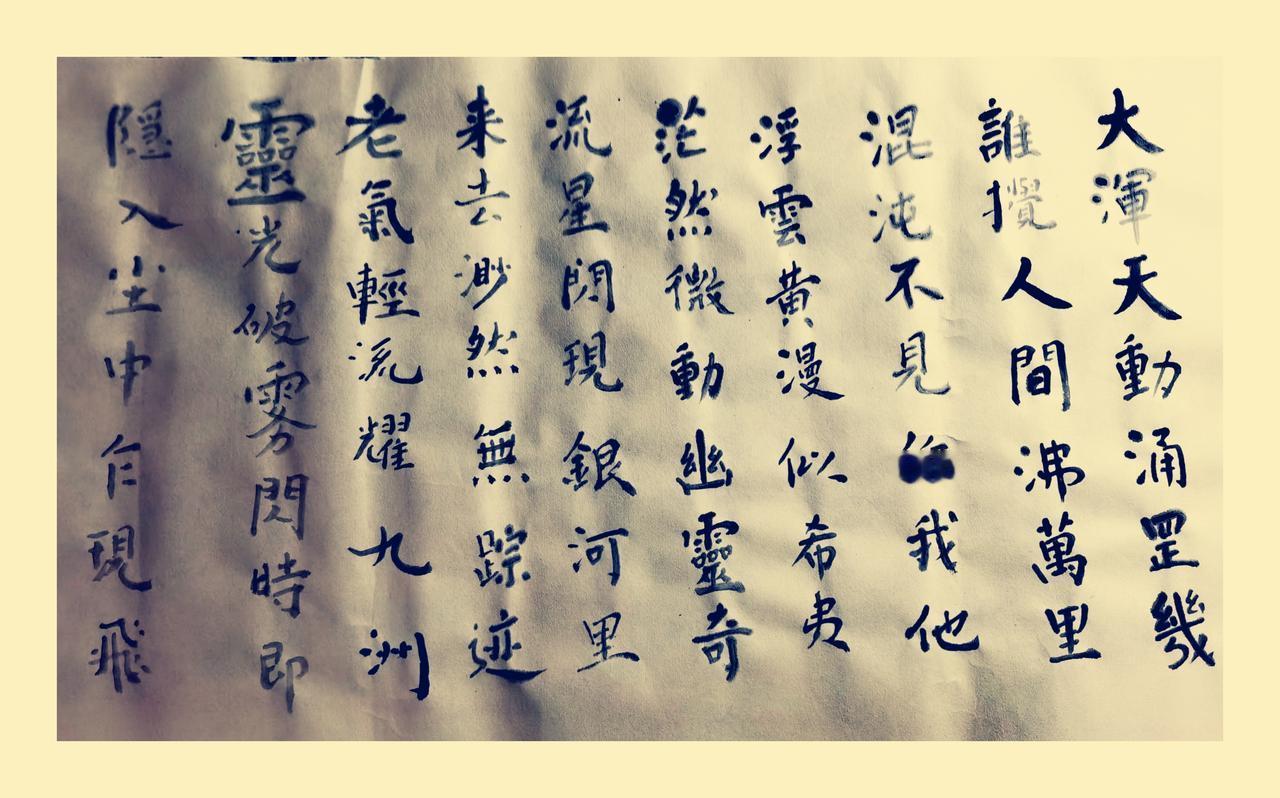 大渾天動涌罡幾
誰攪人間沸萬里
混沌不見我他
浮雲黃漫似希夷
茫然微動幽靈奇
流星閃現銀河里
来去渺然無踪迹
老氣輕流耀九洲
靈光破雾閃時即
隱入尘中乍現飛